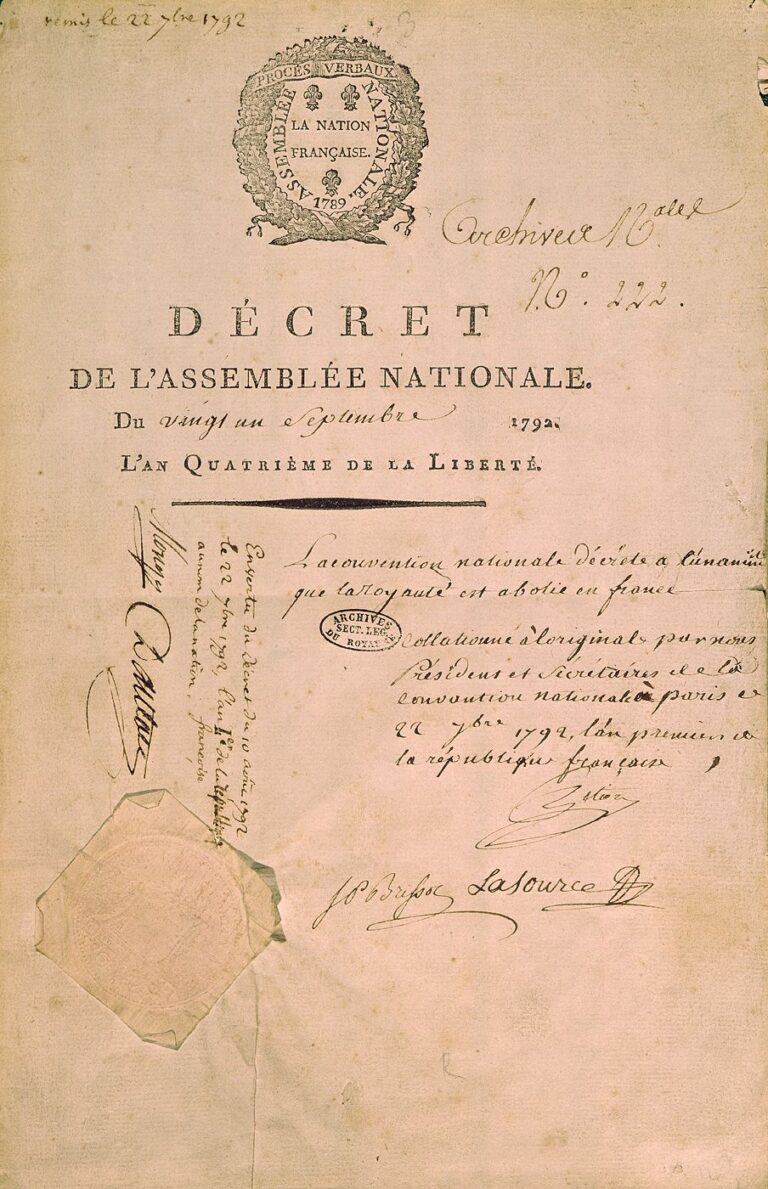 remis le 22 7bre 1792
PROCÈS VERBAUX
ASSEMBLÉE NATIONALE.
LA NATION
FRANÇAISE.
1789
Archives N.ales
N.º 222.
DÉCRET
DE L'ASSEMBLÉE NATIONALE.
Du vingt un Septembre 1792.
L'AN QUATRIÈME DE LA LIBERTÉ.
La convention nationale décrete a l'unanimité
que la royauté est abolie en france
ARCHIVES
SECT. LEG.
DU ROYAUME
Collationné à l'original par nous
Président et Sécrétaires de la
Convention nationale à paris le
22 7bre 1792, l'an premier de
la république française
J P Brissot Lasource
En vertu du décret du 10 août 1792
le 22 7bre 1792, l'an 1er de la république
au nom de la nation. françoise
Monge
Danton